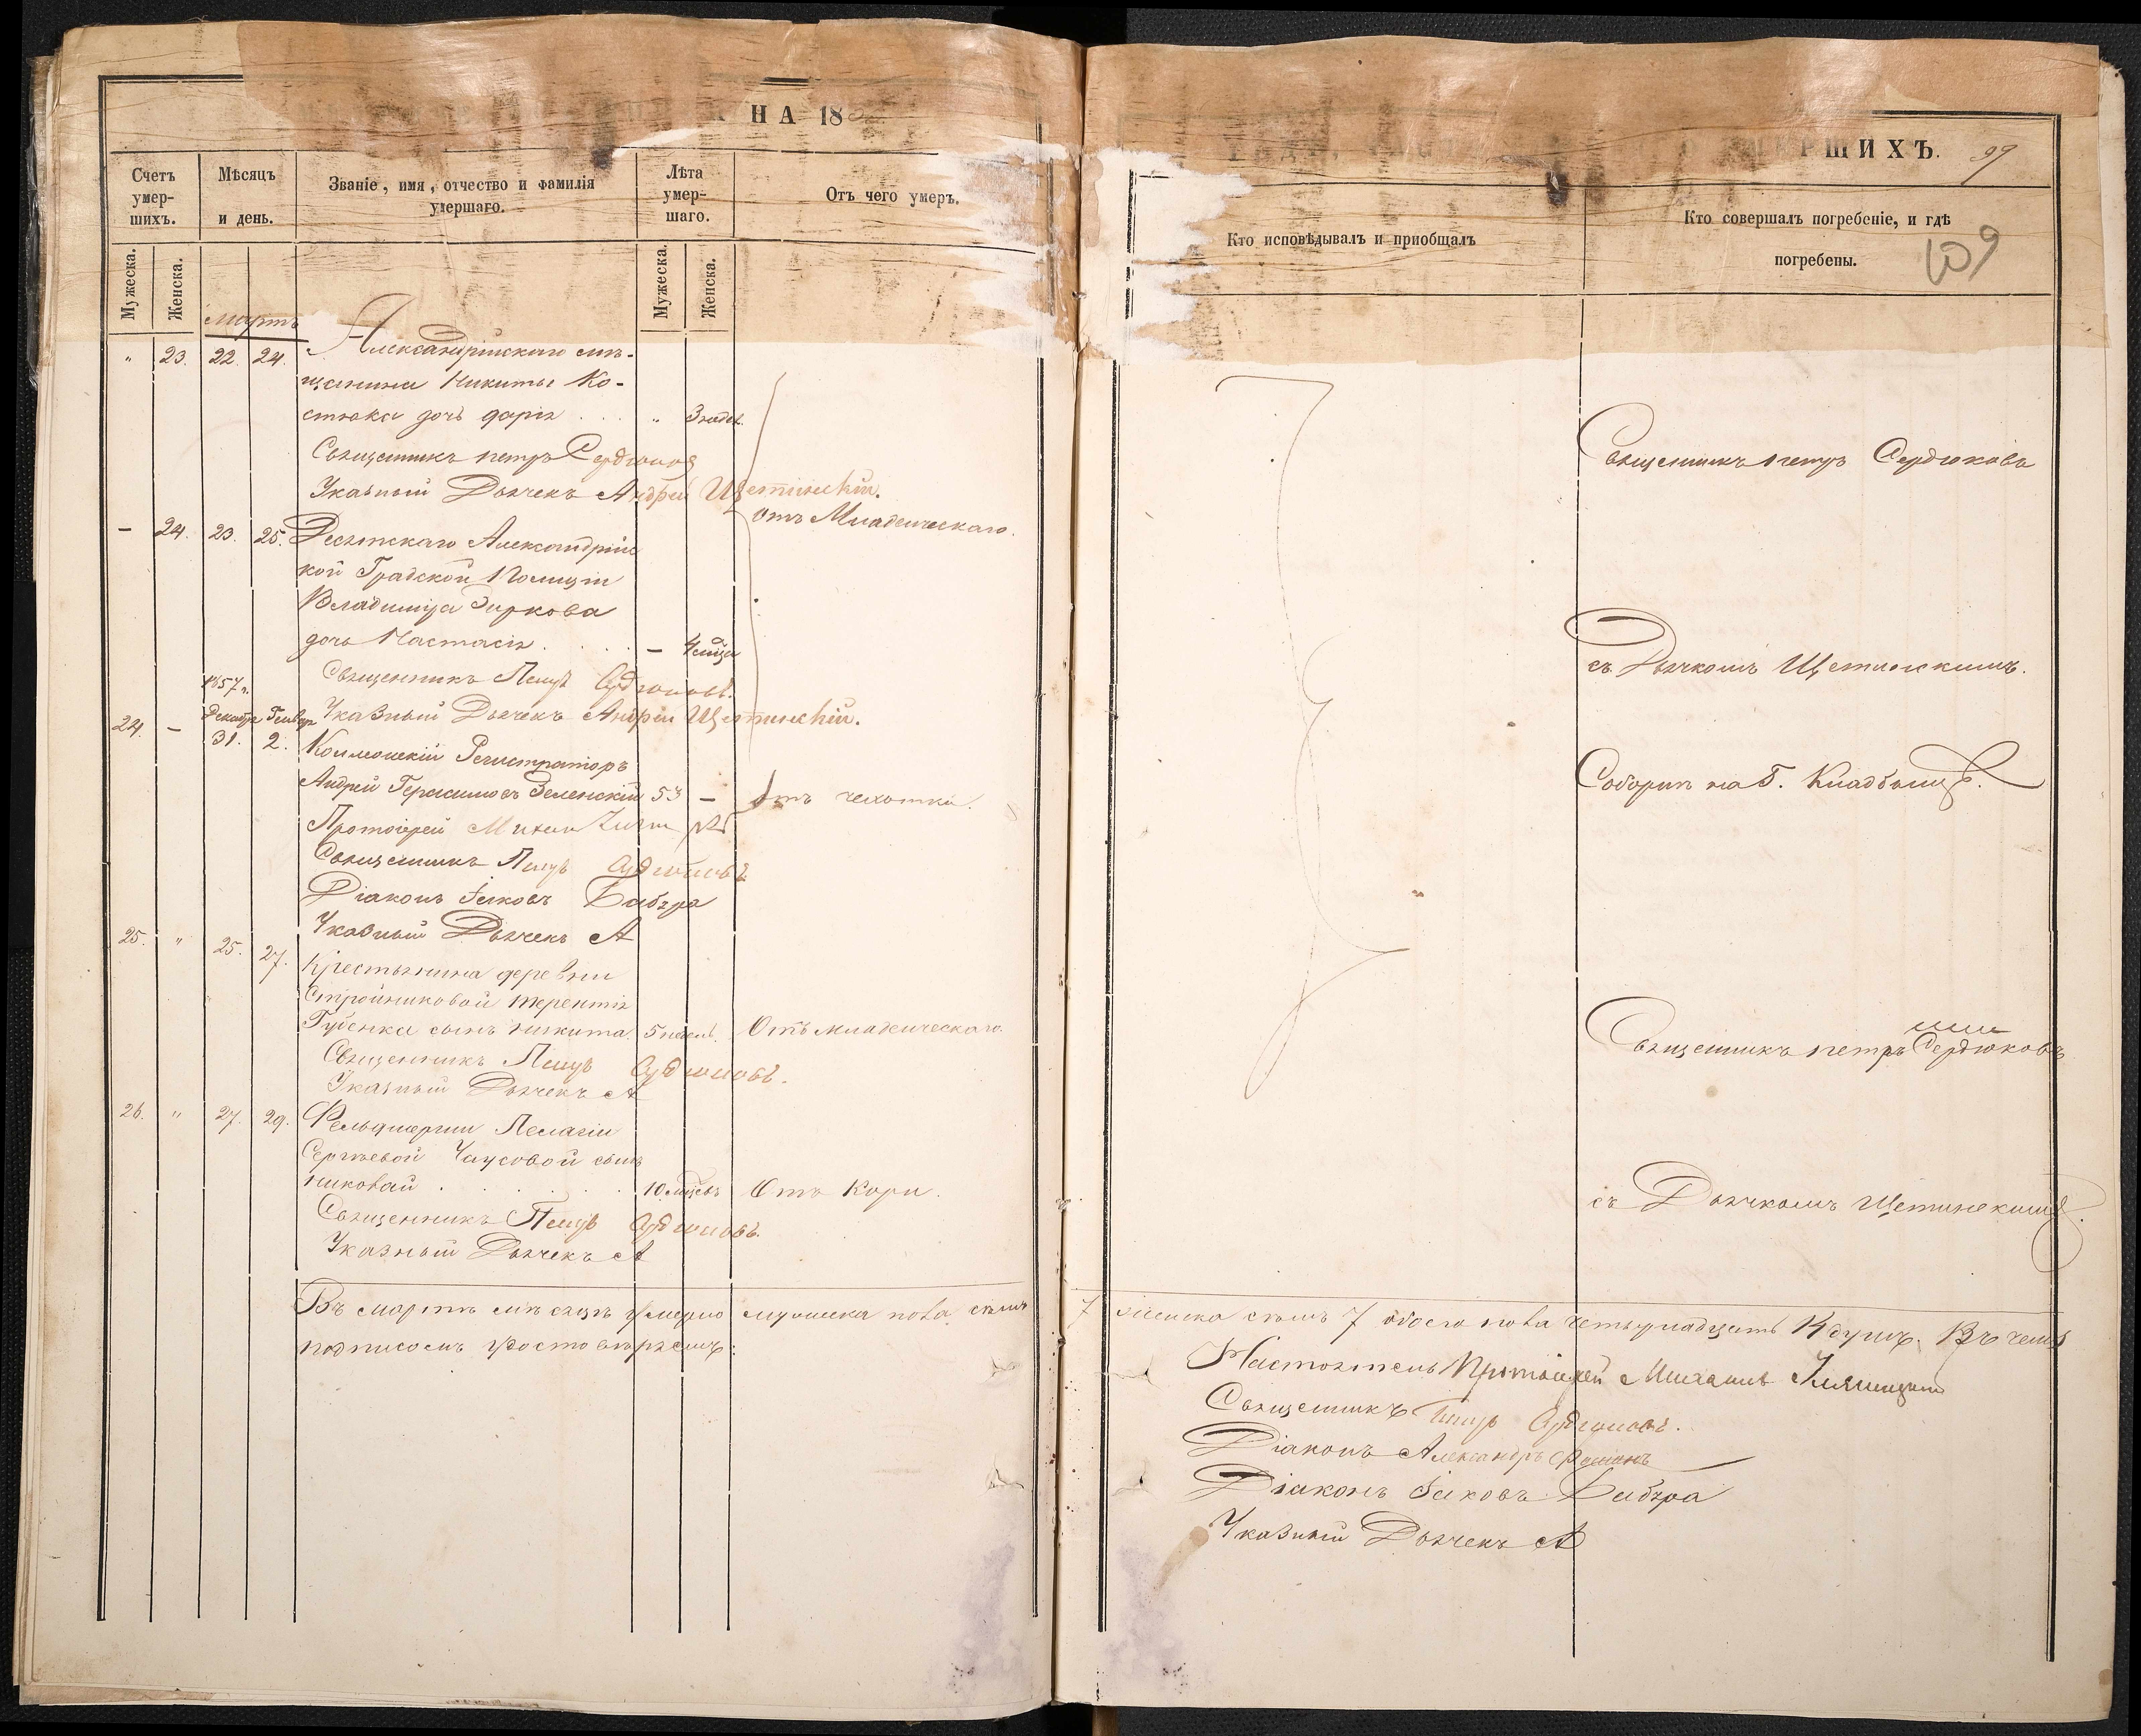 НА 18
Счетъ умер-шихъ.
Мѣсяцъ и день.
Званіе, имя, отчество и фамилія умершаго.
Лѣта умер-шаго.
Отъ чего умеръ.
Мужеска.
Женска.
Мужеска.
Женска.
Мартъ
" 23. 22 24. Александрійскаго мѣ-
щанина Никиты Ко-
стюка дочь Дарія . . . " 3 недѣ.
Священникъ Петръ Сердюковъ
Указный Дьячекъ Андрей Щетинскій.
Отъ Младенческаго.
— 24. 23. 25. Десятскаго Александрійс
кой Градской Полиціи
Владиміра Зиркова
дочь Настасія . . . . — 4 мѣся
Священникъ Петръ Сердюковъ.
1857 г.
Декабр Генвар Указный Дьячекъ Андрей Щетинскій.
24. — 31. 2. Коллежскій Регистраторъ
Андрей Герасимовъ Зеленскій 53 — Отъ чахотки.
Протоіерей Михаил
Священникъ Петръ Сердюковъ
Діаконъ Іаковъ Бабура
Указный Дьячекъ А
25. " 25. 27. Крестьянина деревни
Стройниковой Терентія
Губенка сынъ Никита 5 недѣль. Отъ младенческаго.
Священникъ Петръ Сердюковъ.
Указный Дьячекъ А
26. " 27. 29. Фельдшерши Пелагіи
Сергѣевой Чаусовой сынъ
Николай . . . . . . 10 мѣсяцъ Отъ Кори.
Священникъ Петръ Сердюковъ.
Указный Дьячекъ А
Въ мартѣ мѣсяцѣ умерло мужеска пола семь
подписомъ удостовѣряемъ:
РШИХЪ. 99
Кто исповѣдывалъ и приобщалъ
Кто совершалъ погребеніе, и гдѣ погребены.
109
Священникъ Петръ Сердюковъ
съ Дьячкомъ Щетинскимъ.
Соборнѣ на Г. Кладбищѣ.
Священникъ Петръ Сердюковъ
съ Дьячкомъ Щетинскимъ.
7 женска семь 7 обоего пола четырнадцать 14 душъ. Въ чемъ
Настоятель Протоіерей Михаилъ
Священникъ Петръ Сердюковъ.
Діаконъ Александръ
Діаконъ Іаковъ Бабура
Указный Дьячекъ А